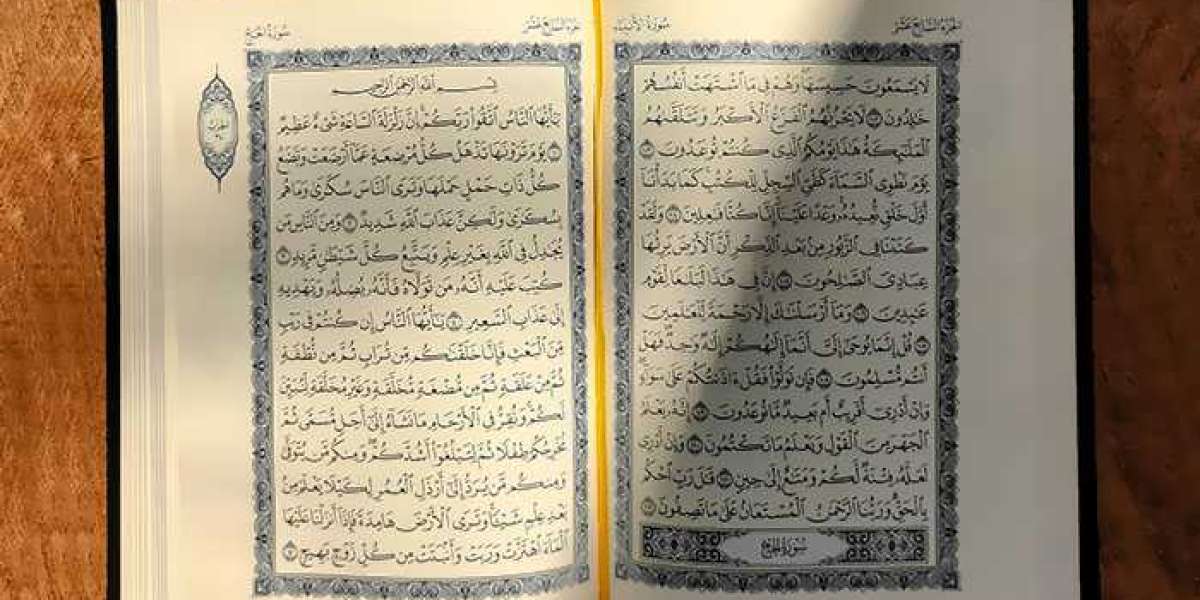 الجزء السابع عشر
سورة الأنبياء
لَا يَسْمَعُونَ حَسِيسَهَا وَهُمْ فِي مَا ٱشْتَهَتْ أَنفُسُهُمْ
خَٰلِدُونَ ١٠٢ لَا يَحْزُنُهُمُ ٱلْفَزَعُ ٱلْأَكْبَرُ وَتَتَلَقَّىٰهُمُ
ٱلْمَلَٰٓئِكَةُ هَٰذَا يَوْمُكُمُ ٱلَّذِي كُنتُمْ تُوعَدُونَ ١٠٣
يَوْمَ نَطْوِي ٱلسَّمَآءَ كَطَيِّ ٱلسِّجِلِّ لِلْكُتُبِ كَمَا بَدَأْنَآ
أَوَّلَ خَلْقٍ نُّعِيدُهُۥ وَعْدًا عَلَيْنَآ إِنَّا كُنَّا فَٰعِلِينَ ١٠٤ وَلَقَدْ
كَتَبْنَا فِي ٱلزَّبُورِ مِنۢ بَعْدِ ٱلذِّكْرِ أَنَّ ٱلْأَرْضَ يَرِثُهَا
عِبَادِيَ ٱلصَّٰلِحُونَ ١٠٥ إِنَّ فِي هَٰذَا لَبَلَٰغًا لِّقَوْمٍ
عَٰبِدِينَ ١٠٦ وَمَآ أَرْسَلْنَٰكَ إِلَّا رَحْمَةً لِّلْعَٰلَمِينَ
١٠٧ قُلْ إِنَّمَا يُوحَىٰٓ إِلَيَّ أَنَّمَآ إِلَٰهُكُمْ إِلَٰهٌ وَٰحِدٌ فَهَلْ
أَنتُم مُّسْلِمُونَ ١٠٨ فَإِن تَوَلَّوْا۟ فَقُلْ ءَاذَنتُكُمْ عَلَىٰ سَوَآءٍ
وَإِنْ أَدْرِيٓ أَقَرِيبٌ أَم بَعِيدٌ مَّا تُوعَدُونَ ١٠٩ إِنَّهُۥ يَعْلَمُ
ٱلْجَهْرَ مِنَ ٱلْقَوْلِ وَيَعْلَمُ مَا تَكْتُمُونَ ١١٠ وَإِنْ أَدْرِي
لَعَلَّهُۥ فِتْنَةٌ لَّكُمْ وَمَتَٰعٌ إِلَىٰ حِينٍ ١١١ قَٰلَ رَبِّ ٱحْكُم
بِٱلْحَقِّ وَرَبُّنَا ٱلرَّحْمَٰنُ ٱلْمُسْتَعَانُ عَلَىٰ مَا تَصِفُونَ ١١٢
سورة الحج
الجزء السابع عشر
سورة الحج
بِسْمِ ٱللَّهِ ٱلرَّحْمَٰنِ ٱلرَّحِيمِ
يَٰٓأَيُّهَا ٱلنَّاسُ ٱتَّقُوا۟ رَبَّكُمْ إِنَّ زَلْزَلَةَ ٱلسَّاعَةِ شَيْءٌ عَظِيمٌ
١ يَوْمَ تَرَوْنَهَا تَذْهَلُ كُلُّ مُرْضِعَةٍ عَمَّآ أَرْضَعَتْ وَتَضَعُ
كُلُّ ذَاتِ حَمْلٍ حَمْلَهَا وَتَرَى ٱلنَّاسَ سُكَٰرَىٰ وَمَا هُم
بِسُكَٰرَىٰ وَلَٰكِنَّ عَذَابَ ٱللَّهِ شَدِيدٌ ٢ وَمِنَ ٱلنَّاسِ مَن
يُجَٰدِلُ فِي ٱللَّهِ بِغَيْرِ عِلْمٍ وَيَتَّبِعُ كُلَّ شَيْطَٰنٍ مَّرِيدٍ ٣
كُتِبَ عَلَيْهِ أَنَّهُۥ مَن تَوَلَّاهُ فَأَنَّهُۥ يُضِلُّهُۥ وَيَهْدِيهِ
إِلَىٰ عَذَابِ ٱلسَّعِيرِ ٤ يَٰٓأَيُّهَا ٱلنَّاسُ إِن كُنتُمْ فِي رَيْبٍ
مِّنَ ٱلْبَعْثِ فَإِنَّا خَلَقْنَٰكُم مِّن تُرَابٍ ثُمَّ مِن نُّطْفَةٍ
ثُمَّ مِنْ عَلَقَةٍ ثُمَّ مِن مُّضْغَةٍ مُّخَلَّقَةٍ وَغَيْرِ مُخَلَّقَةٍ لِّنُبَيِّنَ
لَكُمْ وَنُقِرُّ فِي ٱلْأَرْحَامِ مَا نَشَآءُ إِلَىٰٓ أَجَلٍ مُّسَمًّى ثُمَّ
نُخْرِجُكُمْ طِفْلًا ثُمَّ لِتَبْلُغُوٓا۟ أَشُدَّكُمْ وَمِنكُم مَّن يُتَوَفَّىٰ
وَمِنكُم مَّن يُرَدُّ إِلَىٰٓ أَرْذَلِ ٱلْعُمُرِ لِكَيْلَا يَعْلَمَ مِنۢ
بَعْدِ عِلْمٍ شَيْـًٔا وَتَرَى ٱلْأَرْضَ هَامِدَةً فَإِذَآ أَنزَلْنَا عَلَيْهَا
ٱلْمَآءَ ٱهْتَزَّتْ وَرَبَتْ وَأَنۢبَتَتْ مِن كُلِّ زَوْجٍۭ بَهِيجٍ ٥